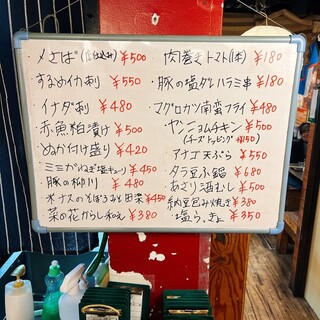 ・〆さば ¥500
・するめイカ刺 ¥550
・イナダ刺 ¥480
・赤魚粕漬け ¥500
・ぬか付け盛り ¥420
・ミミガーねぎ塩キューリ ¥450
・豚の柳川 ¥480
・米ナスのそぼろみそ田楽 ¥450
・菜の花からし和え ¥380
・肉巻きトマト(1本) ¥180
・豚の塩ダレハラミ串 ¥180
・マグロカツ南蛮フライ ¥480
・ヤンニョムチキン ¥500
(チーズトッピング +¥150)
・アナゴ天ぷら ¥550
・タラ豆ふ鍋 ¥680
・あさり酒むし ¥500
・納豆包み焼き ¥380
・塩らっきょ ¥350